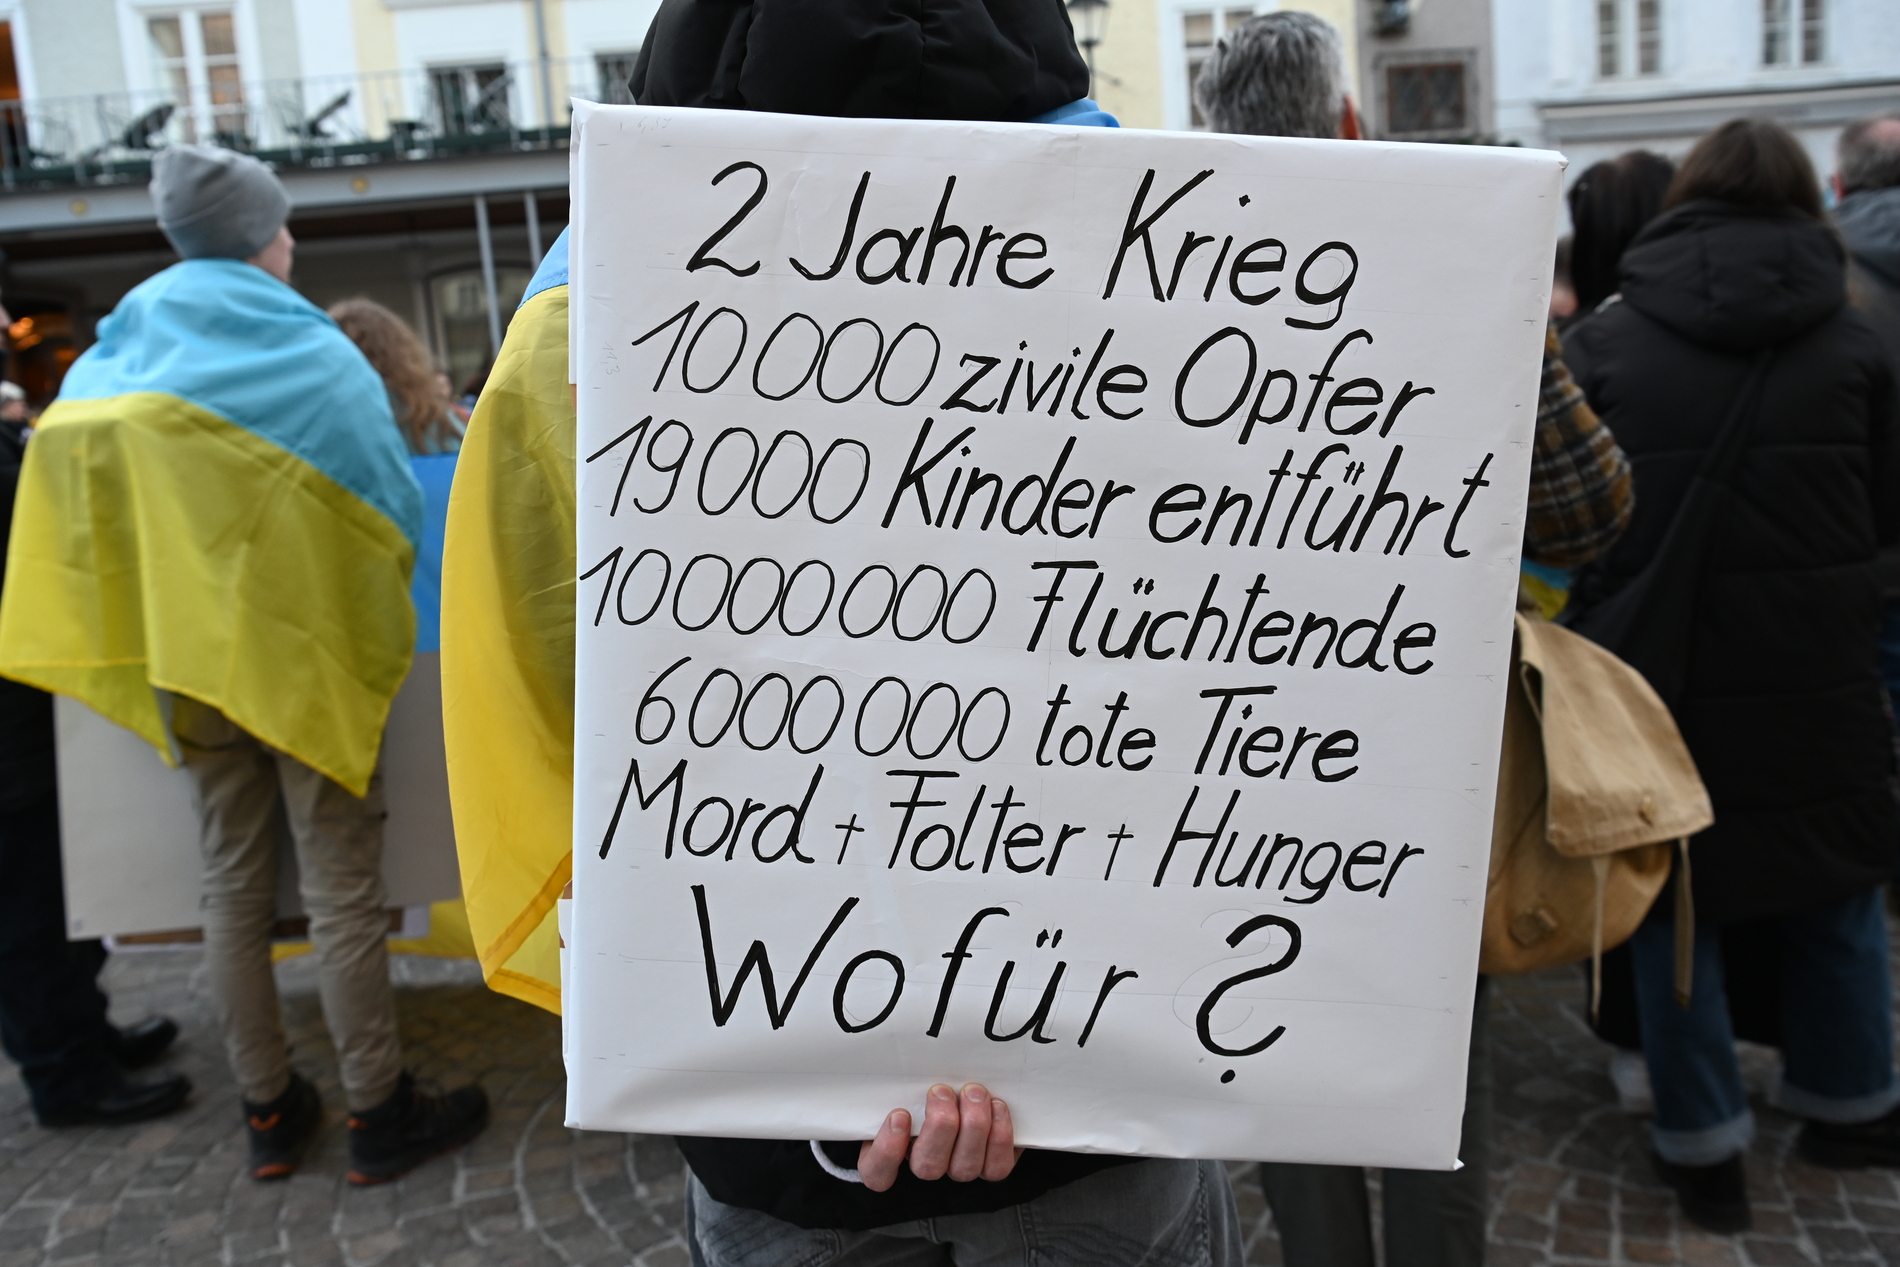 2 Jahre Krieg
10 000 zivile Opfer
19 000 Kinder entführt
10 000 000 Flüchtende
6 000 000 tote Tiere
Mord + Folter + Hunger
Wofür ?